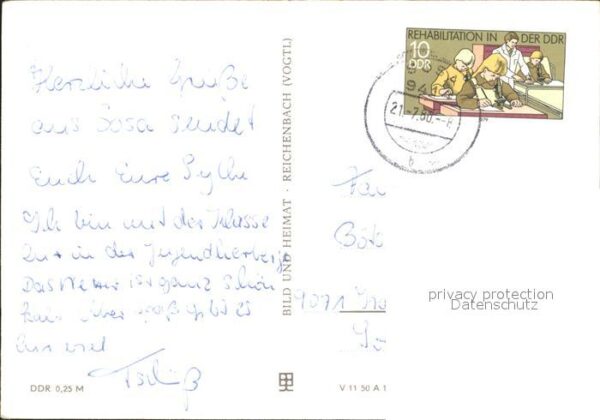 Herzliche Grüße
aus Sosa sendet
Euch Eure
Ich bin mit der Klasse
zur in der Jugendherberge
Das Wetter ist ganz schön
kalt. Aber Spaß gibt es
Tschüß
DDR 0,25 M
BILD UND HEIMAT · REICHENBACH (VOGTL)
V 11 50 A 1
REHABILITATION IN DER DDR
10
DDR
94
21.-7.80.-8
b
Fam
9071
privacy protection
Datenschutz